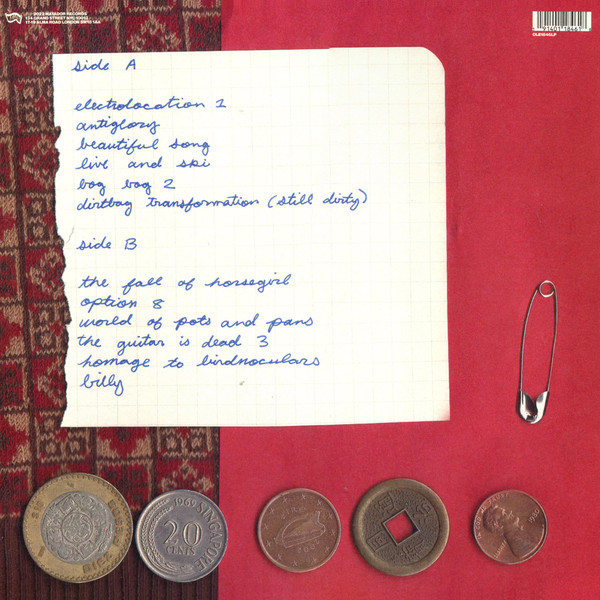 2022 MATADOR RECORDS
134 GRAND STREET NYC 10013
17-19 ALMA ROAD LONDON SW18 1AA
OLE1849LP
side A
electrolocation 1
antiglory
beautiful song
live and ski
bog bog 2
dirtbag transformation (still dirty)
side B
the fall of horsegirl
option 8
world of pots and pans
the guitar is dead 3
homage to birdnoculars
billy
1969 SINGAPORE
20
CENTS